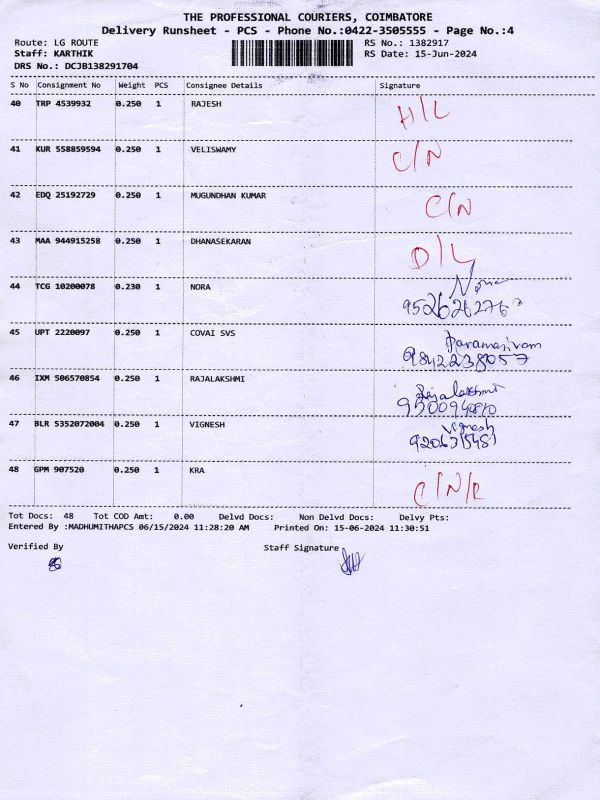 THE PROFESSIONAL COURIERS, COIMBATORE
Delivery Runsheet - PCS - Phone No.:0422-3505555 - Page No.:4
Route: LG ROUTE RS No.: 1382917
Staff: KARTHIK RS Date: 15-Jun-2024
DRS No.: DCJB138291704
S No Consignment No Weight PCS Consignee Details Signature
40 TRP 4539932 0.250 1 RAJESH H/L
41 KUR 558859594 0.250 1 VELISWAMY C/N
42 EDQ 25192729 0.250 1 MUGUNDHAN KUMAR C/N
43 MAA 944915258 0.250 1 DHANASEKARAN D/L
44 TCG 10200078 0.230 1 NORA Nora
45 UPT 2220097 0.250 1 COVAI SVS Paramasivam
9842238057
46 IXM 506570854 0.250 1 RAJALAKSHMI Rajalakshmi
47 BLR 5352072004 0.250 1 VIGNESH Vignesh
48 GPM 907520 0.250 1 KRA C/N/R
Tot Docs: 48 Tot COD Amt: 0.00 Delvd Docs: Non Delvd Docs: Delvy Pts:
Entered By :MADHUMITHAPCS 06/15/2024 11:28:20 AM Printed On: 15-06-2024 11:30:51
Verified By Staff Signature